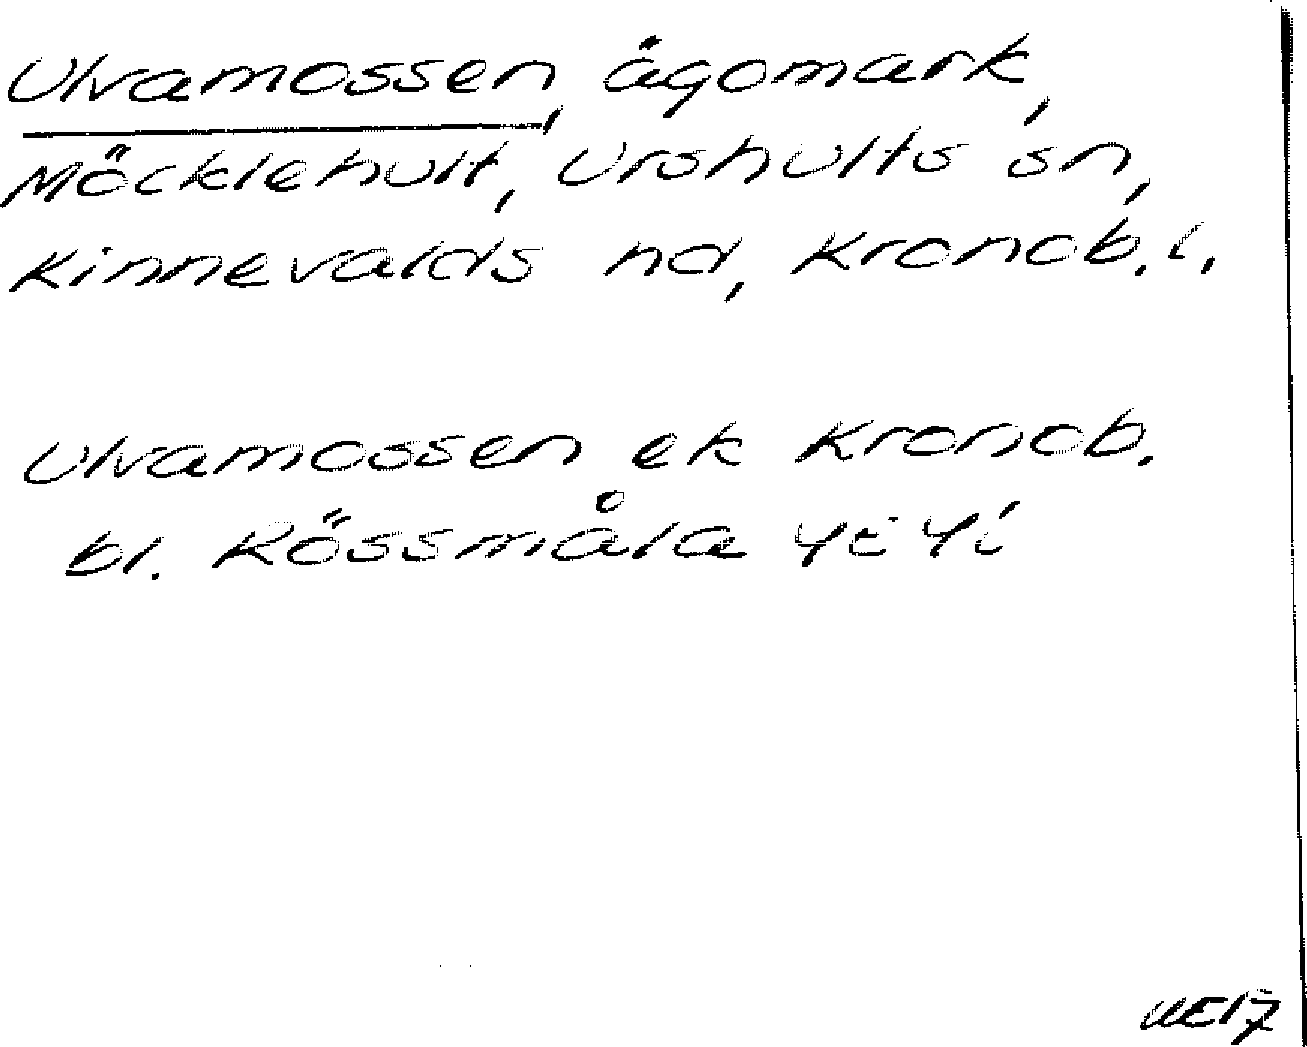 Ulvamossen, ägomark,
Möcklehult, Urshults sn,
Kinnevalds hd, Kronob. l.
Ulvamossen ek Kronob.
bl. Rössmåla 4E4i